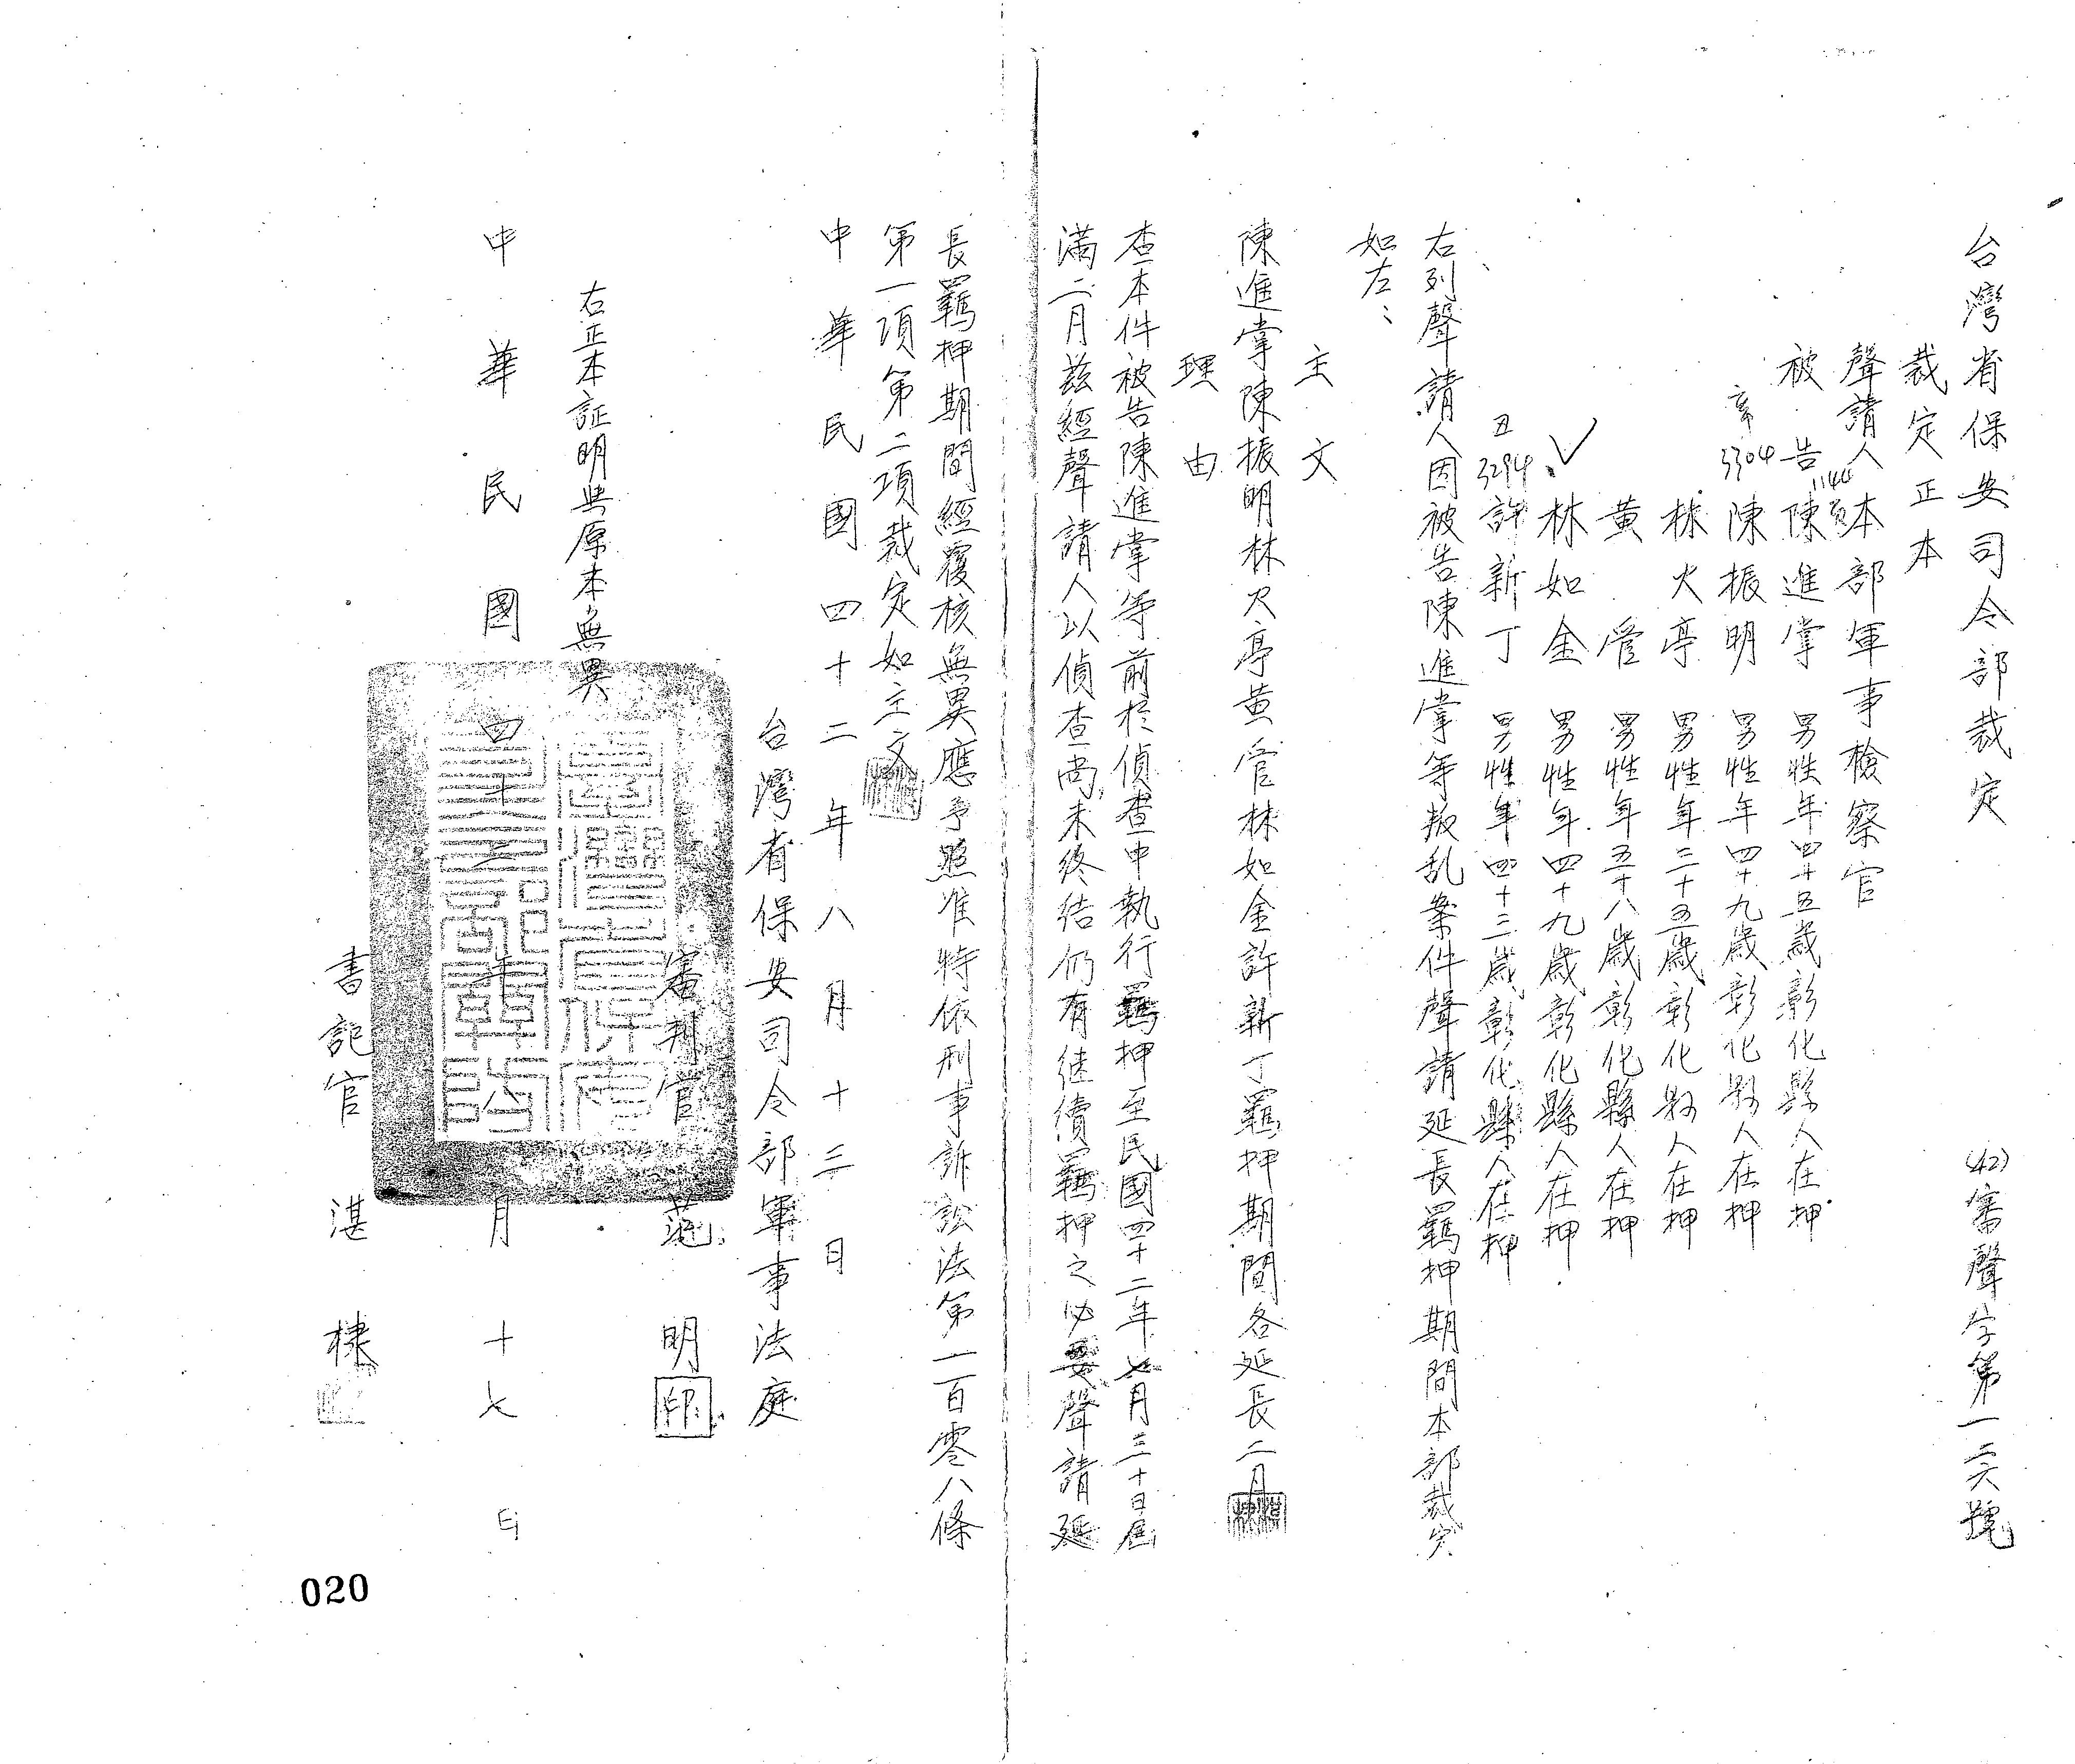 台灣省保安司令部裁定
(42)審聲字第一二六號
裁定正本
聲請人 本部軍事檢察官
被告 陳進掌 男性年四十五歲彰化縣人在押
3304 陳振明 男性年四十九歲彰化縣人在押
林火亭 男性年三十五歲彰化縣人在押
黃管 男性年五十八歲彰化縣人在押
林如金 男性年四十九歲彰化縣人在押
丑 3294 許新丁 男性年四十三歲彰化縣人在押
右列聲請人因被告陳進掌等叛乱案件聲請延長羈押期間本部裁定
如左：
主文
陳進掌陳振明林火亭黃管林如金許新丁羈押期間各延長二月
理由
查本件被告陳進掌等前於偵查中執行羈押至民國四十二年七月三十日屆
滿二月茲經聲請人以偵查尚未終結仍有继續羈押之必要聲請延
長羈押期間經覆核無異應予照准特依刑事訴訟法第一百零八條
第一項第二項裁定如主文
中華民國四十二年八月十三日
台灣省保安司令部軍事法庭
審判官 范明 印
右正本証明與原本無異
中華民國四十二年八月十七日
書記官 湛棣
020